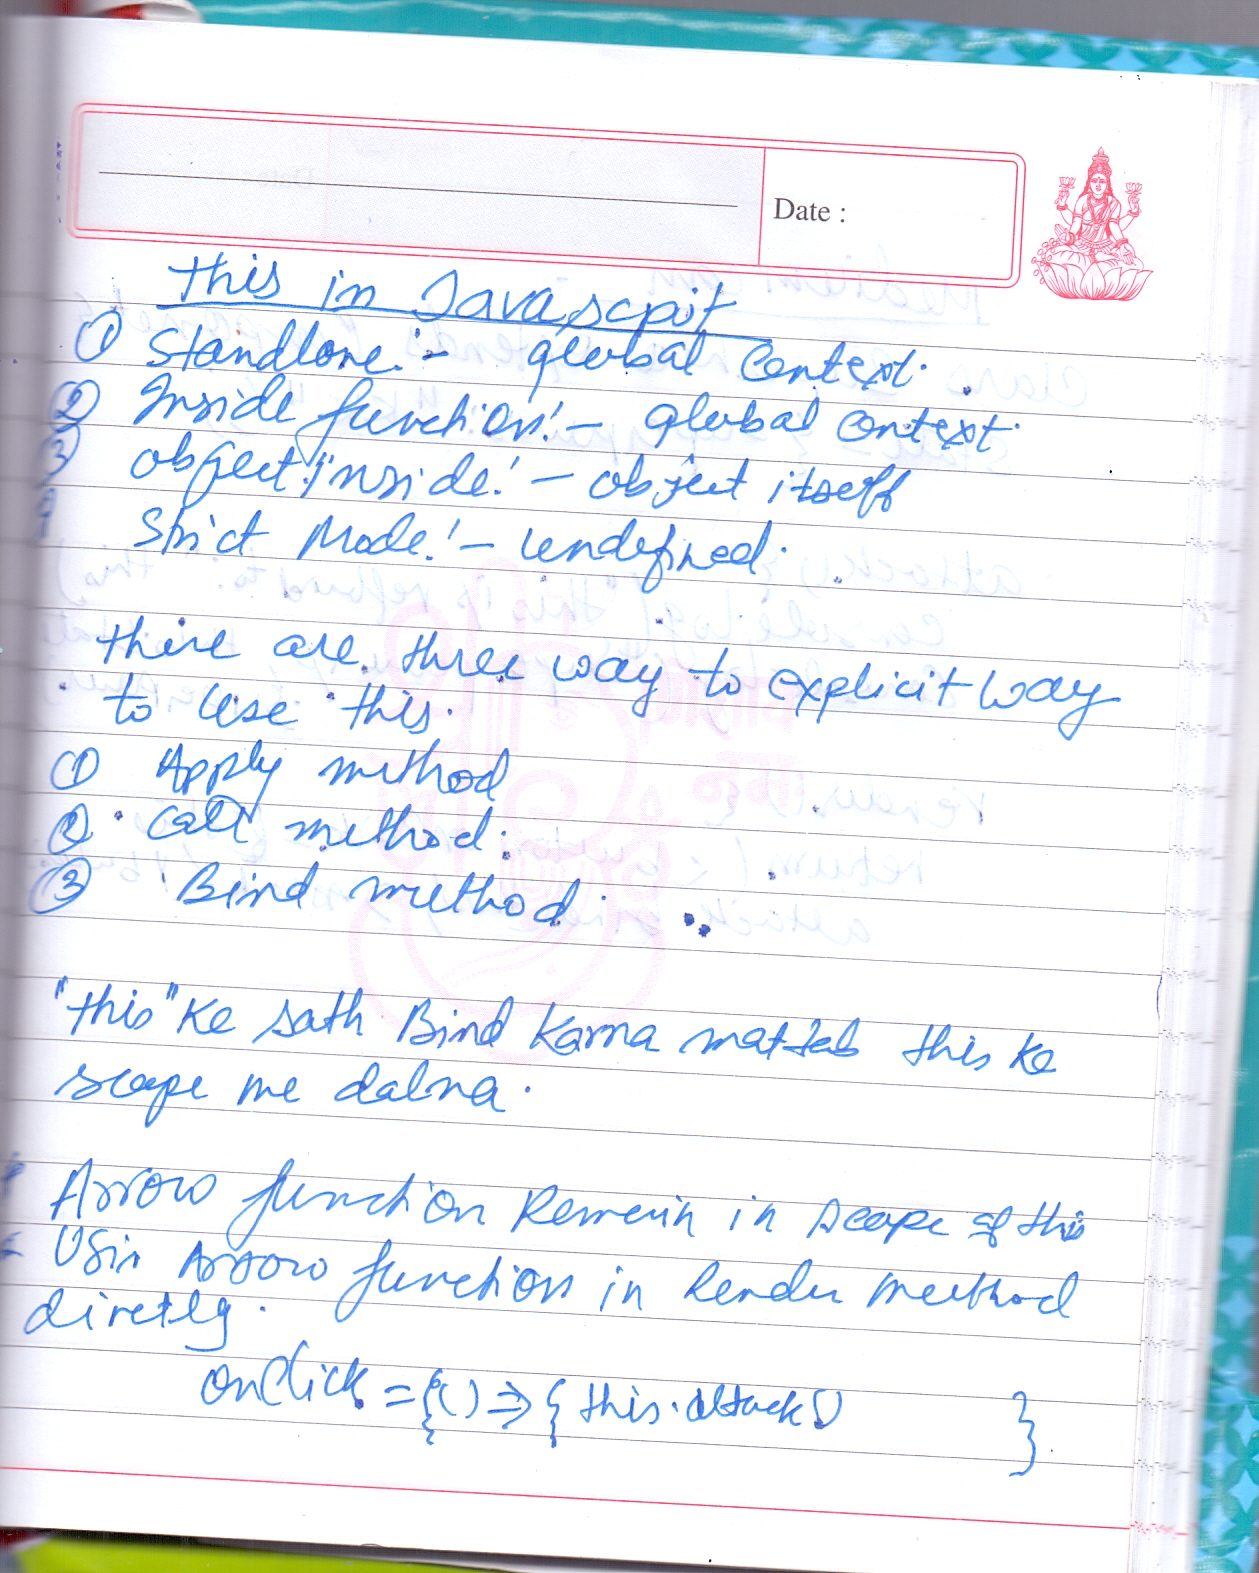 Date :
This in Javascpit
① Standlone :- global context.
② Inside function :- global context.
③ object inside :- object itself
4 Strict Mode :- undefined.
there are three way to explicit way
to use this.
① Apply method
② Call method.
③ Bind method.
"this" ke sath Bind Karna matlab this ke
scope me dalna.
Arrow function Remain in scope of this
Usin Arrow function in Render method
diretly.
onClick = {() => { this.attack()
}